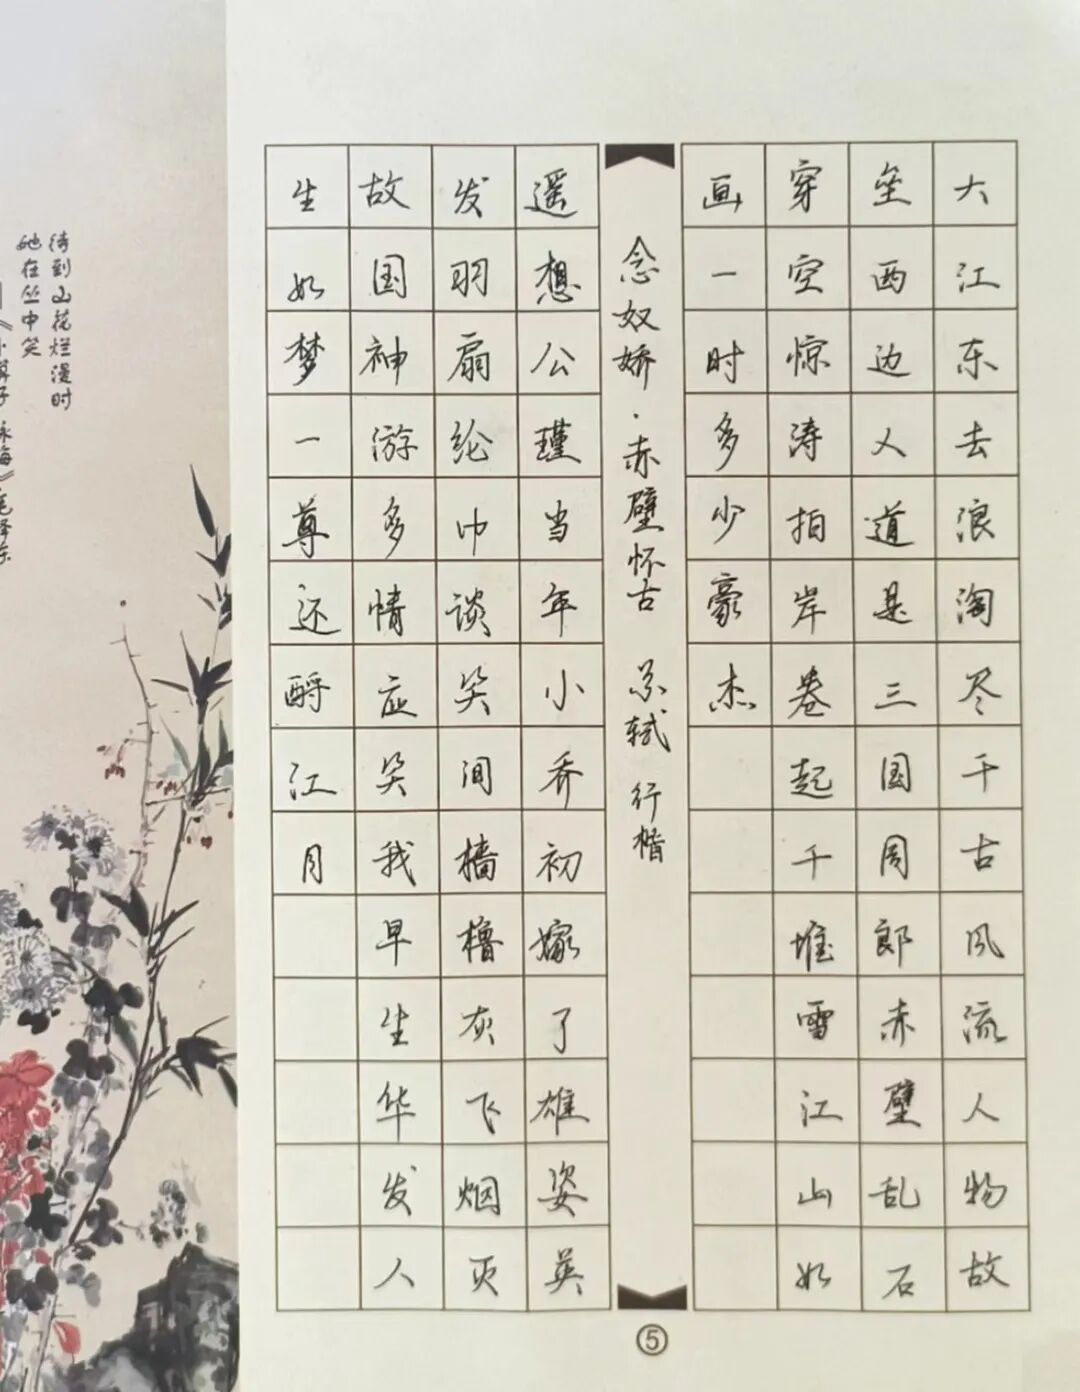 大江东去浪淘尽千古风流人物故
垒西边人道是三国周郎赤壁乱石
穿空惊涛拍岸卷起千堆雪江山如
画一时多少豪杰
念奴娇·赤壁怀古 苏轼 行楷
遥想公瑾当年小乔初嫁了雄姿英
发羽扇纶巾谈笑间樯橹灰飞烟灭
故国神游多情应笑我早生华发人
生如梦一尊还酹江月
⑤
待到山花烂漫时
她在丛中笑
《卜算子 咏梅》毛泽东